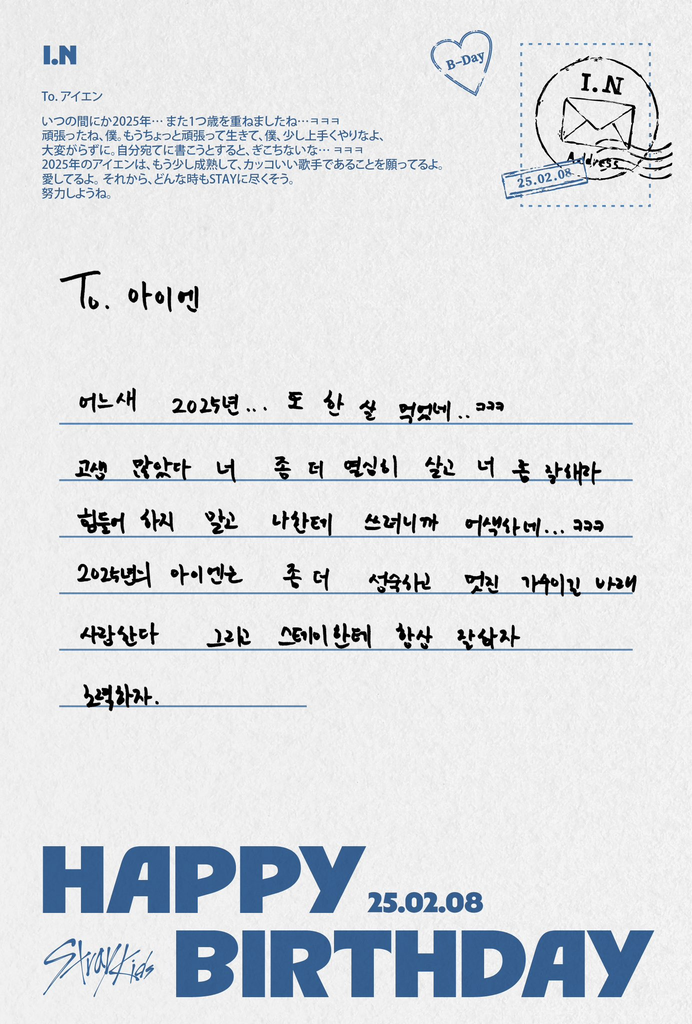 I.N
To. アイエン
いつの間にか2025年… また1つ歳を重ねましたね…ㅋㅋㅋ
頑張ったね、僕。もうちょっと頑張って生きて、僕、少し上手くやりなよ、
大変がらずに。自分宛てに書こうとすると、ぎこちないな… ㅋㅋㅋ
2025年のアイエンは、もう少し成熟して、カッコいい歌手であることを願ってるよ。
愛してるよ。それから、どんな時もSTAYに尽くそう。
努力しようね。
B-Day
I.N
Address
25.02.08
To. 아이엔
어느새 2025년... 또 한 살 먹었네..ㅋㅋㅋ
고생 많았다 너 좀 더 열심히 살고 너 좀 잘해라
힘들어 하지 말고 나한테 쓰려니까 어색하네...ㅋㅋㅋ
2025년의 아이엔은 좀 더 성숙하고 멋진 가수이길 바래
사랑한다 그리고 스테이한테 항상 잘하자
노력하자.
HAPPY
25.02.08
Stray Kids
BIRTHDAY